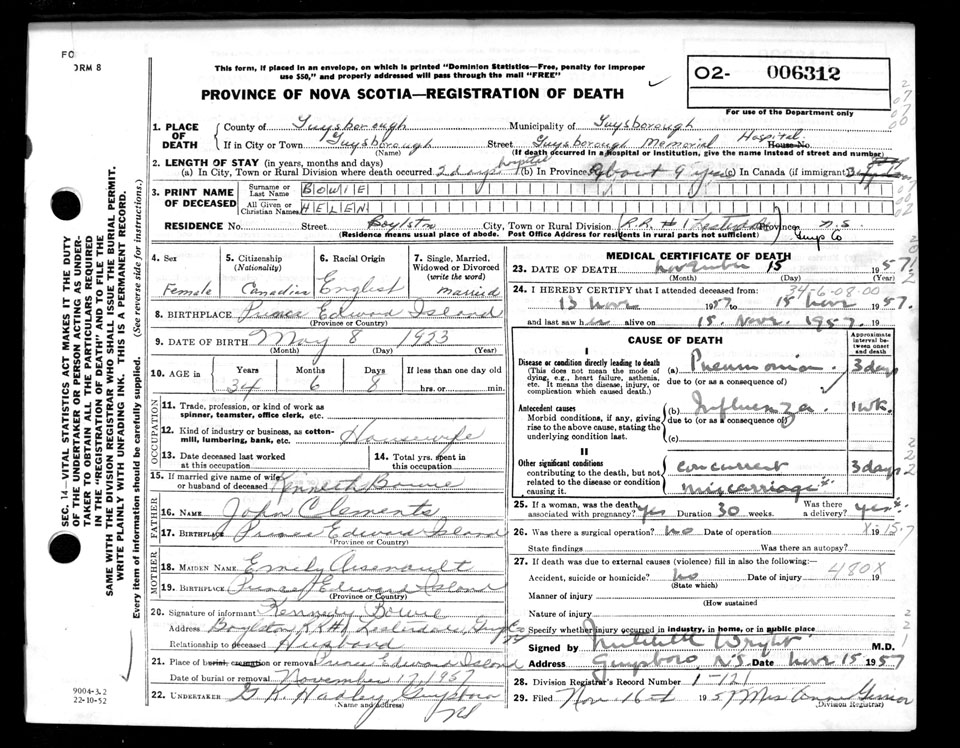 FO
ORM 8
This form, if placed in an envelope, on which is printed "Dominion Statistics—Free, penalty for improper
use $50," and properly addressed will pass through the mail "FREE"
PROVINCE OF NOVA SCOTIA—REGISTRATION OF DEATH
02- 006312
For use of the Department only
1. PLACE OF DEATH
County of Guysborough Municipality of Guysborough
If in City or Town Guysborough Street Guysborough Memorial Hospital House No
(Name) (If death occurred in a hospital or institution, give the name instead of street and number)
2. LENGTH OF STAY (in years, months and days)
(a) In City, Town or Rural Division where death occurred 2 days hospital (b) In Province about 9 yrs (c) In Canada (if immigrant)
3. PRINT NAME OF DECEASED
Surname or Last Name BOWIE
All Given or Christian Names HELEN
RESIDENCE No. Street Boylston City, Town or Rural Division R.R. #1 Province N.S.
Guys Co
(Residence means usual place of abode. Post Office Address for residents in rural parts not sufficient)
4. Sex
Female
5. Citizenship (Nationality)
Canadian
6. Racial Origin
English
7. Single, Married, Widowed or Divorced (write the word)
married
8. BIRTHPLACE Prince Edward Island
(Province or Country)
9. DATE OF BIRTH May 8 1923
(Month) (Day) (Year)
10. AGE in Years Months Days If less than one day old
34 6 8 hrs. or min.
OCCUPATION
11. Trade, profession, or kind of work as spinner, teamster, office clerk, etc.
12. Kind of industry or business, as cotton-mill, lumbering, bank, etc. Housewife
13. Date deceased last worked at this occupation
14. Total yrs. spent in this occupation
15. If married give name of wife or husband of deceased Kenneth Bowie
FATHER
16. NAME John Clements
17. BIRTHPLACE Prince Edward Island
(Province or Country)
MOTHER
18. MAIDEN NAME Emily Arsenault
19. BIRTHPLACE Prince Edward Island
(Province or Country)
20. Signature of informant Kennedy Bowie
Address Boylston, RR#1
Relationship to deceased Husband
21. Place of burial, cremation or removal Prince Edward Island
Date of burial or removal November 17, 1957
22. UNDERTAKER G K Hadley Guysboro
NS
(Name and Address)
MEDICAL CERTIFICATE OF DEATH
23. DATE OF DEATH November 15 1957
(Month) (Day) (Year)
34-6-08-00
24. I HEREBY CERTIFY that I attended deceased from:
13 Nov 1957 to 15 Nov 1957.
and last saw her alive on 15. Nov. 1957. 19
CAUSE OF DEATH
Approximate interval between onset and death
I
Disease or condition directly leading to death
(This does not mean the mode of dying, e.g., heart failure, asthenia, etc. It means the disease, injury, or complication which caused death.)
(a) Pneumonia. 3 days
due to (or as a consequence of)
Antecedent causes
Morbid conditions, if any, giving rise to the above cause, stating the underlying condition last.
(b) Influenza. 1 wk.
due to (or as a consequence of)
(c)
II
Other significant conditions
contributing to the death, but not related to the disease or condition causing it.
concurrent miscarriage* 3 days
25. If a woman, was the death associated with pregnancy? yes Duration 30 weeks. Was there a delivery? yes*
26. Was there a surgical operation? no Date of operation 19
State findings Was there an autopsy?
27. If death was due to external causes (violence) fill in also the following:—
480X
Accident, suicide or homicide? no Date of injury 19
(State which)
Manner of injury
(How sustained
Nature of injury
Specify whether injury occurred in industry, in home, or in public place
Signed by Wright M.D.
Address Guysboro N.S. Date Nov 15 1957
28. Division Registrar's Record Number 1-121
29. Filed Nov 16th 1957 Miss Anne
(Division Registrar)
SEC. 14—VITAL STATISTICS ACT MAKES IT THE DUTY
OF THE UNDERTAKER OR PERSON ACTING AS UNDER-
TAKER TO OBTAIN ALL THE PARTICULARS REQUIRED
IN THE "REGISTRATION OF DEATH" AND TO FILE THE
SAME WITH THE DIVISION REGISTRAR WHO SHALL ISSUE THE BURIAL PERMIT.
WRITE PLAINLY WITH UNFADING INK. THIS IS A PERMANENT RECORD.
Every item of information should be carefully supplied. (See reverse side for instructions.)
9004-3.2
22-10-52